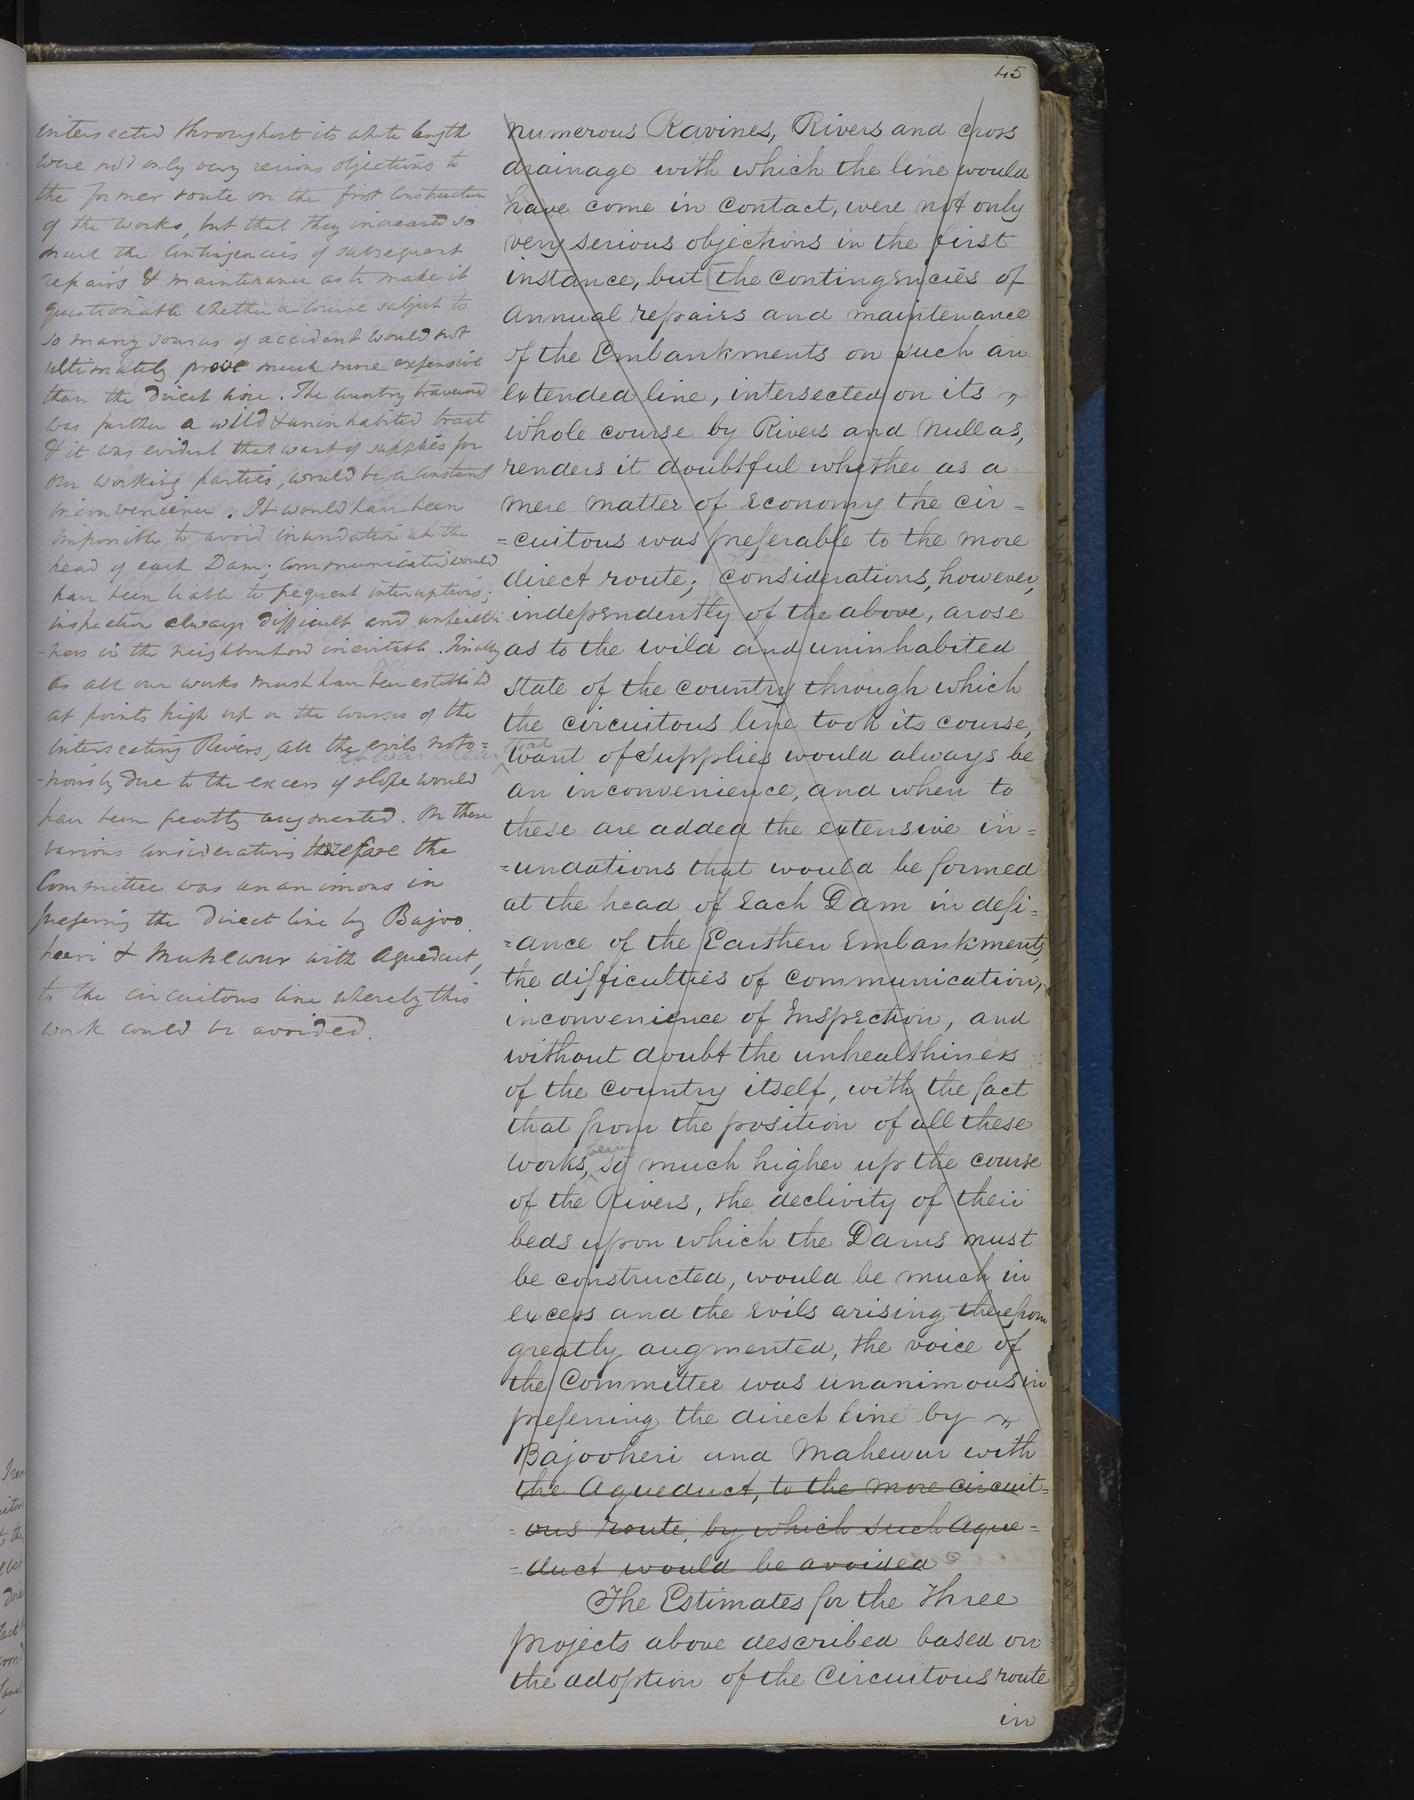 45
intersected throughout its whole length
were not only very serious objections to
the former route on the first construction
of the works, but that they increased so
much the contingencies of subsequent
repairs & maintenance as to make it
questionable whether a course subject to
so many sources of accident would not
ultimately prove much more expensive
than the direct line. The country traversed
was further a wild & uninhabited tract
& it was evident that want of supplies for
our working parties, would be a constant
inconvenience. It would have been
impossible to avoid inundation at the
head of each Dam; communication would
have been liable to frequent interruptions;
inspection always difficult and unhealthi
-ness in the neighbourhood inevitable. Finally
as all our works must have been established
at points high up on the courses of the
intersecting Rivers, all the evils noto=
-riously due to the excess of slope would
have been greatly augmented. On these
various considerations therefore the
Committee was unanimous in
preferring the direct line by Bajoo
heeri & Mahewur with Aqueduct,
to the circuitous line whereby this
work could be avoided.
numerous Ravines, Rivers and cross
drainage with which the line would
have come in contact, were not only
very serious objections in the first
instance, but [the contingencies of
annual repairs and maintenance
of the Embankments on such an
extended line, intersected on its
whole course by Rivers and Nullas,
renders it doubtful whether as a
mere matter of economy the cir=
=cuitous was preferable to the more
direct route; considerations, however,
independently of the above, arose
as to the wild and uninhabited
state of the country through which
the circuitous line took its course,
it was clear that
want of Supplies would always be
an inconvenience, and when to
these are added the extensive in=
=undations that would be formed
at the head of Each Dam in defi=
=ance of the Earthen Embankments,
the difficulties of communication,
inconvenience of Inspection, and
without doubt the unhealthiness
of the country itself, with the fact
that from the position of all these
works, being so much higher up the course
of the Rivers, the declivity of their
beds upon which the Dams must
be constructed, would be much in
excess and the Evils arising therefrom
greatly augmented, the voice of
the Committee was unanimous in
preferring the direct line by
Bajooheri and Mahewur with
the Aqueduct, to the more circuit=
=ous route, by which such Aque=
=duct would be avoided
The Estimates for the Three
projects above described based on
the adoption of the Circuitous route
in